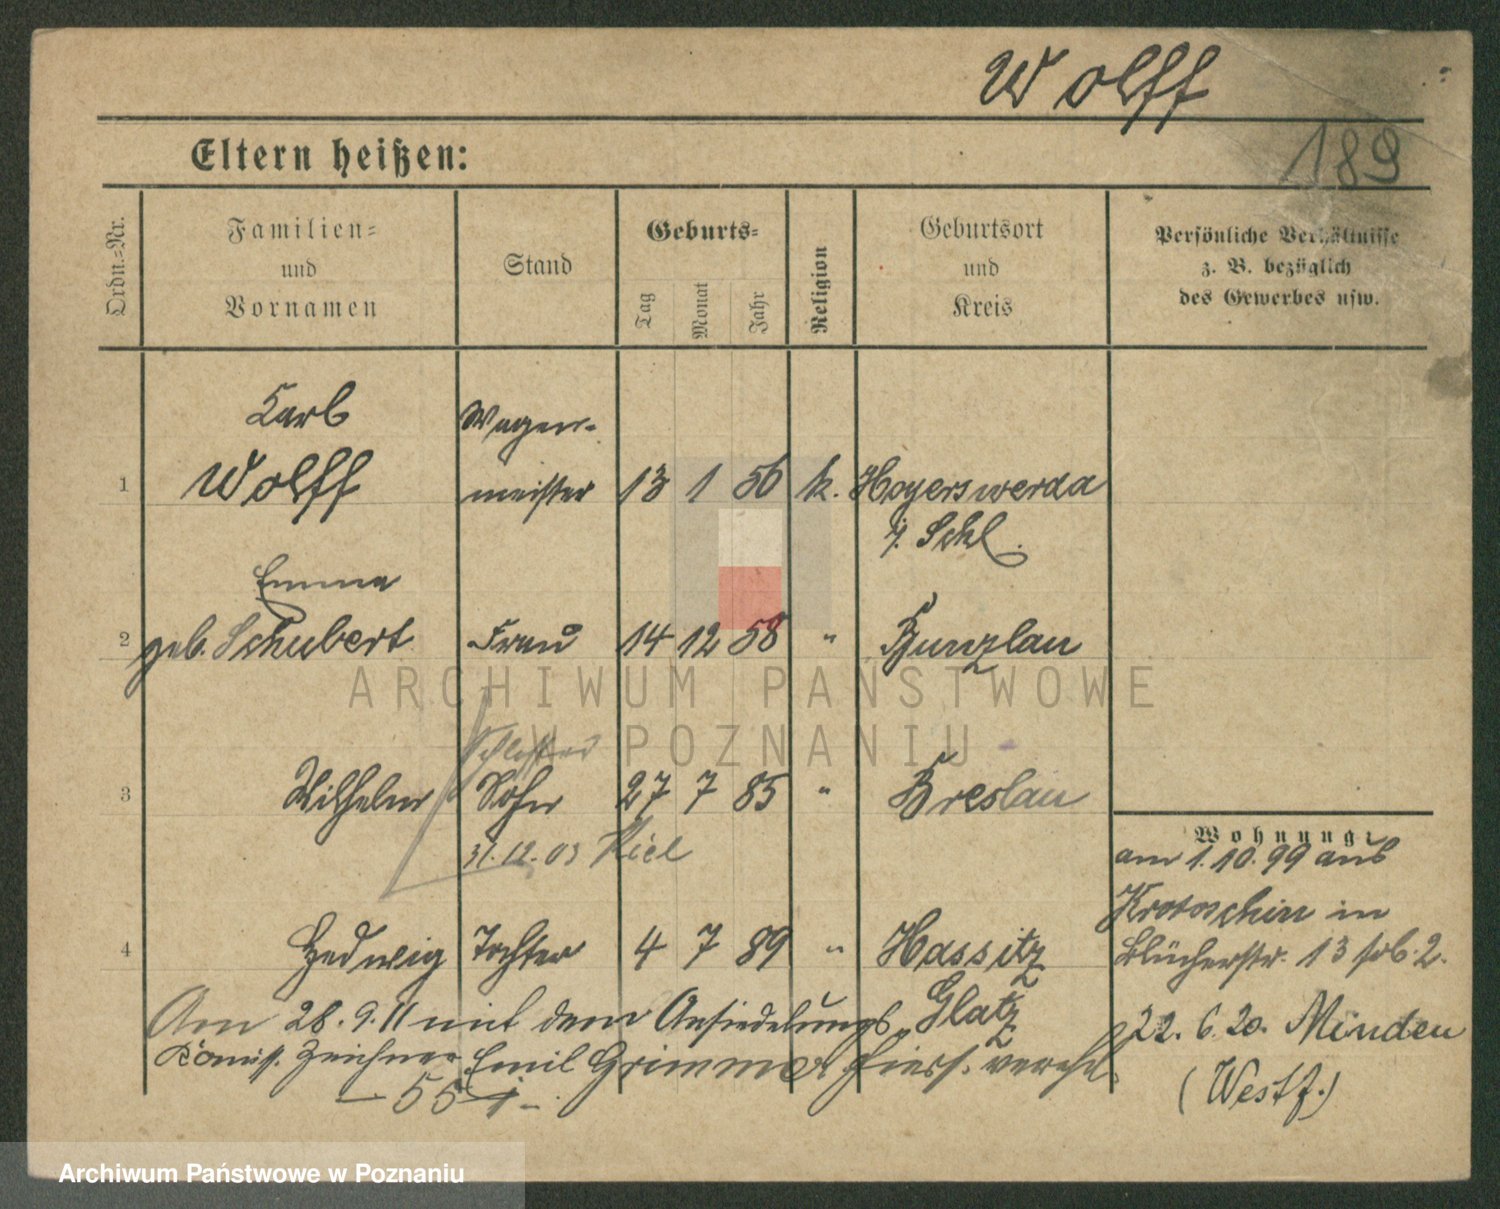 Wolff
189
Eltern heißen:
Ordn.-Nr.
Familien-
und
Vornamen
Stand
Geburts-
Tag
Monat
Jahr
Religion
Geburtsort
und
Kreis
Persönliche Verhältnisse
z. B. bezüglich
des Gewerbes usw.
Carl Wagen-
1 Wolff meister 13 1 56 k. Hoyerswerda
i. Schl.
Emma
2 geb. Schubert Frau 14 12 58 " Bunzlau
Schlosser
3 Wilhelm Sohn 27 7 85 " Breslau
31.12.03 Kiel
Wohnung:
am 1.10.99 aus
Krotoschin in
Blücherstr. 13 2.
4 Hedwig Tochter 4 7 89 " Hassitz
Glatz
22.6.20. Minden
(Westf.)
Am 28.9.11 mit dem Ansiedelungs-
Komiss. Zeichner Emil Grimm hiers. verehl.
ARCHIWUM PAŃSTWOWE
W POZNANIU
Archiwum Państwowe w Poznaniu